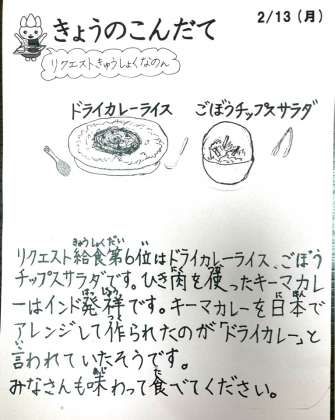 きょうのこんだて
2/13(月)
リクエストきゅうしょくなのん
ドライカレーライス ごぼうチップスサラダ
リクエスト給食第6位はドライカレーライス、ごぼう
チップスサラダです。ひき肉を使ったキーマカレ
ーはインド発祥です。キーマカレーを日本で
アレンジして作られたのが「ドライカレー」と
言われていたそうです。
みなさんも味わって食べてください。